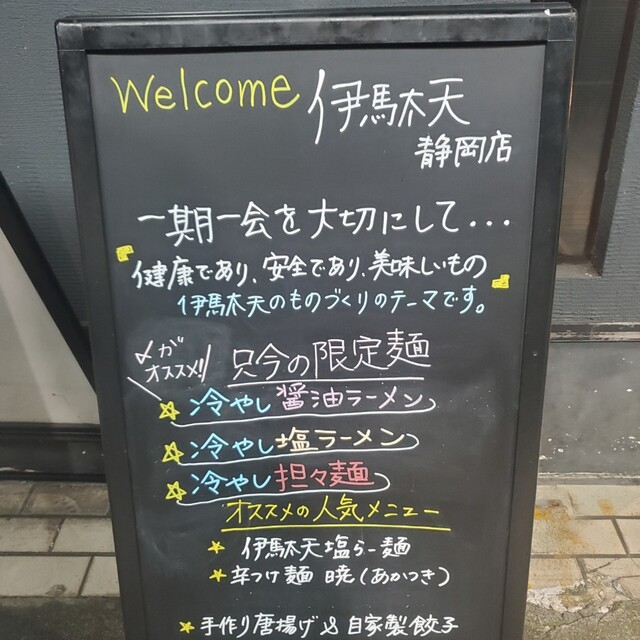 Welcome 伊駄天
静岡店
一期一会を大切にして・・・
『健康であり、安全であり、美味しいもの』
伊駄天のものづくりのテーマです。
〆がオススメ!!
只今の限定麺
☆冷やし醤油ラーメン
☆冷やし塩ラーメン
☆冷やし担々麺
オススメの人気メニュー
★ 伊駄天塩らー麺
★ 辛つけ麺 暁(あかつき)
★ 手作り唐揚げ & 自家製餃子